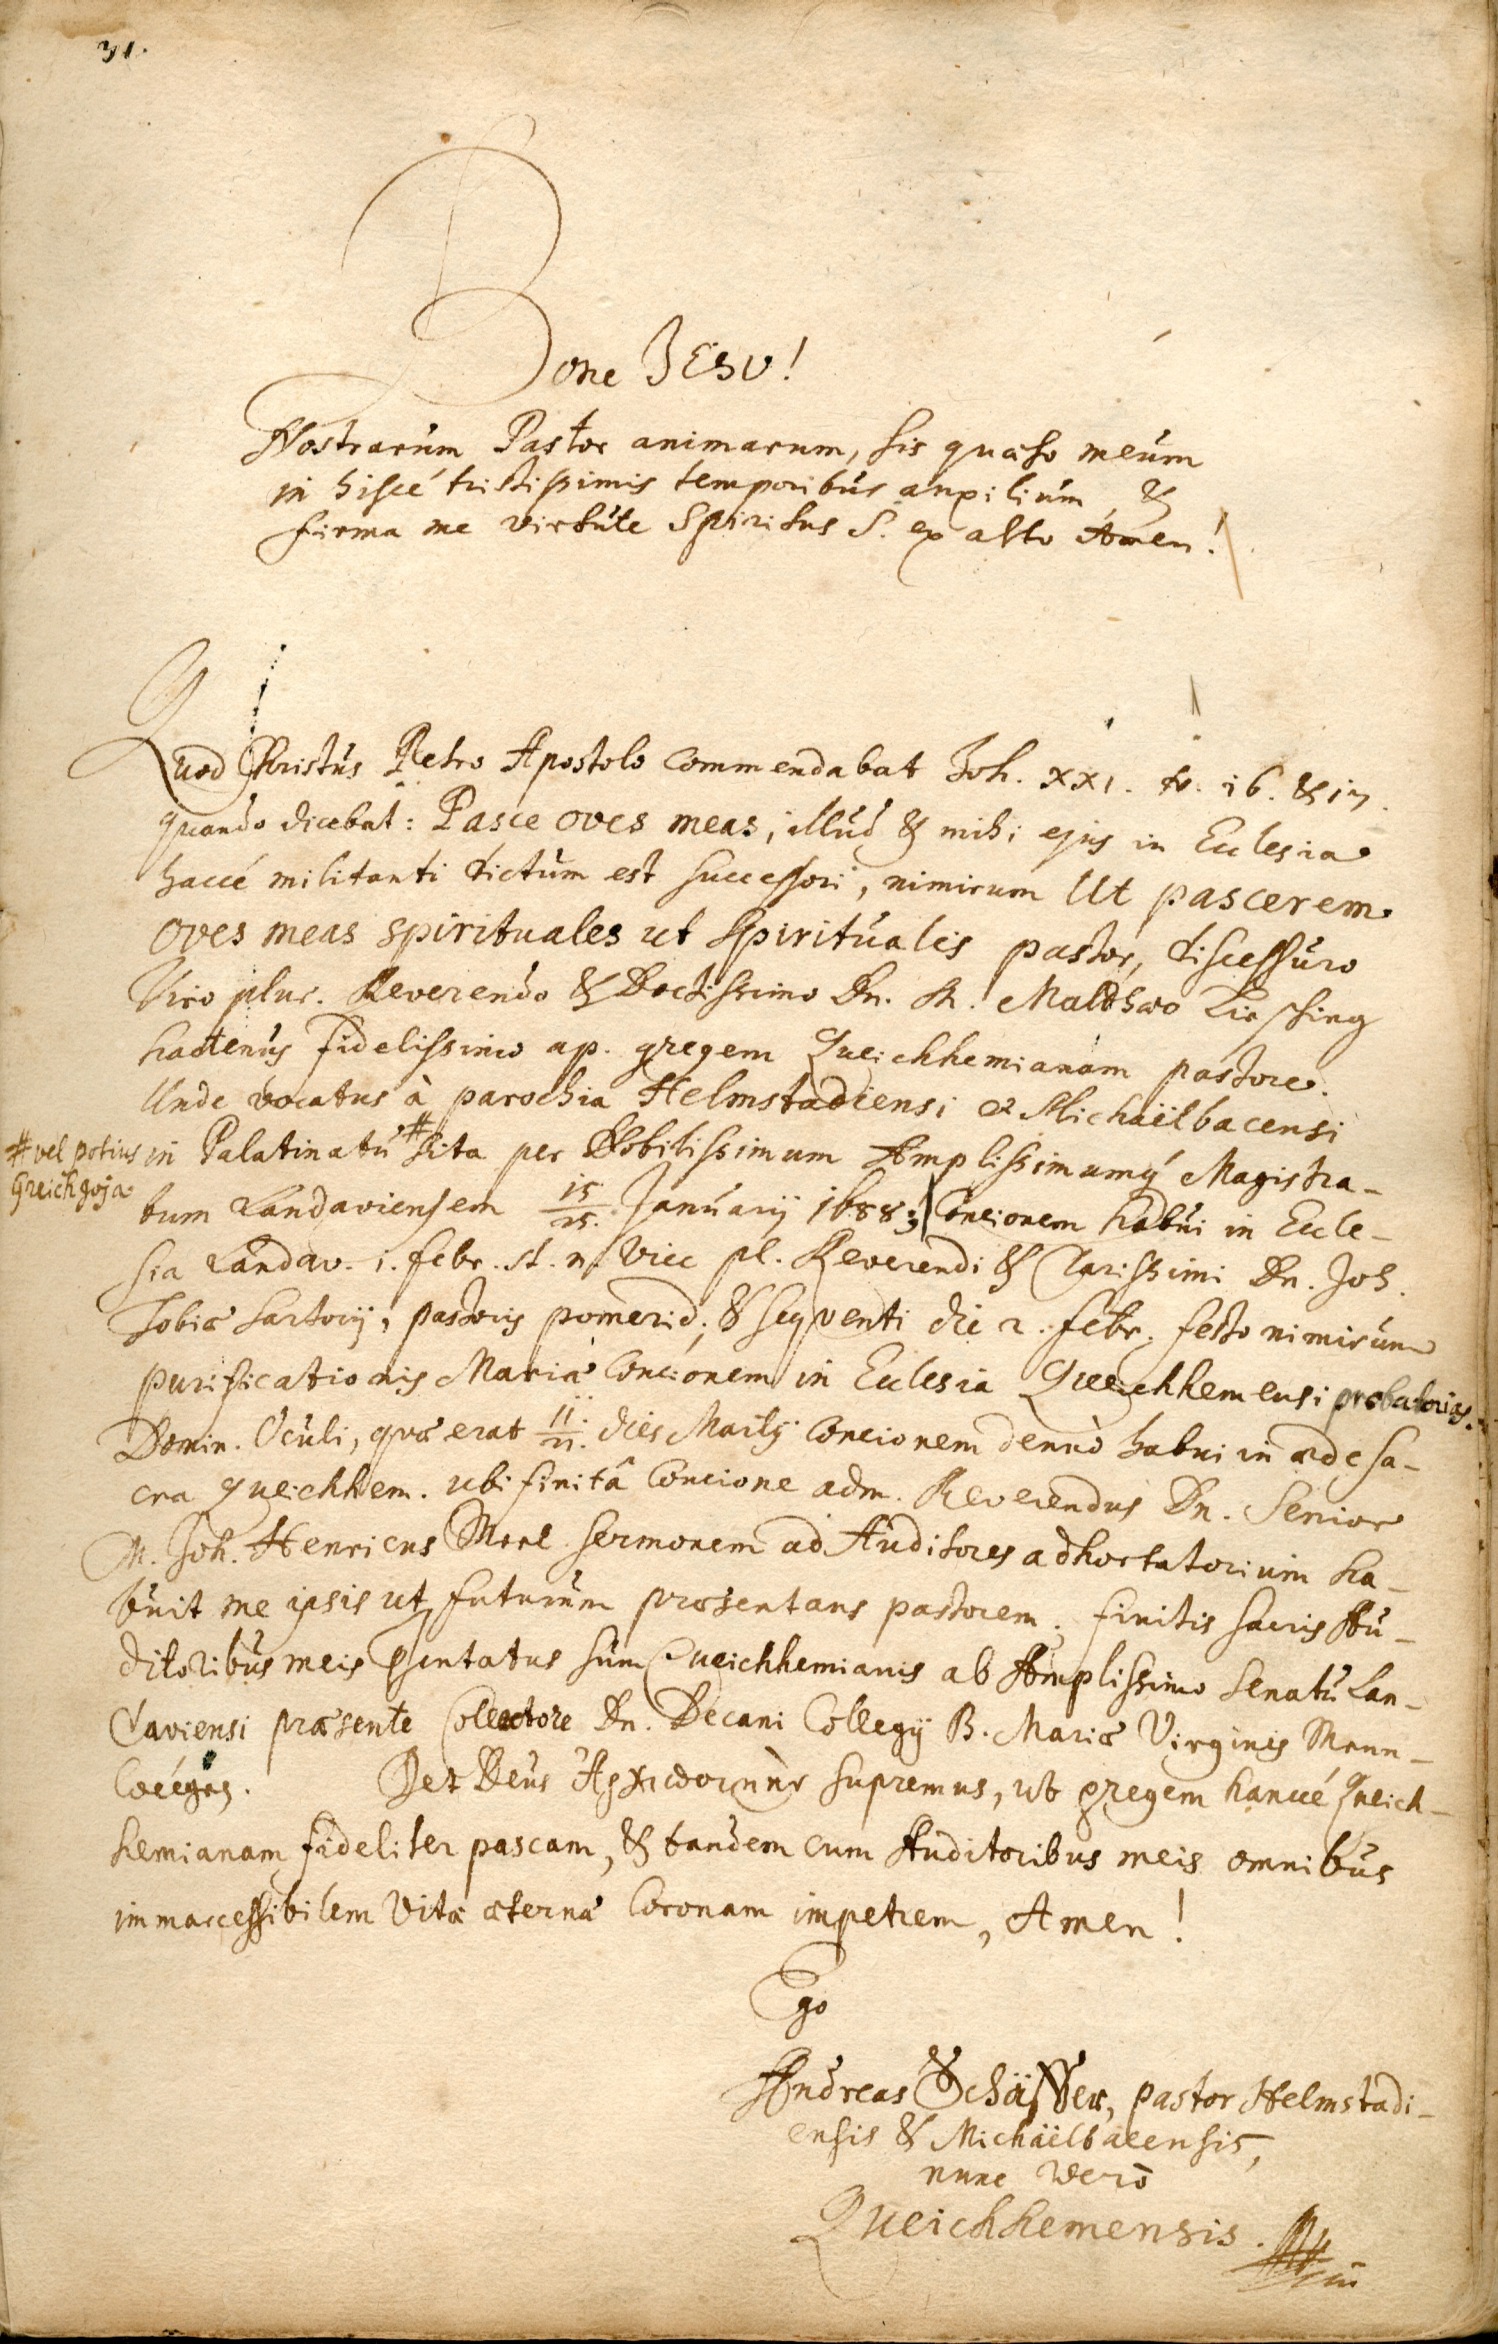 31.
Bone JESU!
Nostrarum Pastor animarum, sis quæso meum
in hisce tristissimis temporibus auxilium, &
firma me virtute Spiritus S. ex alto Amen!
Quod Christus Petro Apostolo commendabat Joh. XXI. v. 16. & 17.
quando dicebat: Pasce oves meas, illud & mihi ejus in Ecclesia
hacce militanti dictum est successori, nimirum Ut pascerem
oves meas spirituales ut spiritualis pastor, discessuro
Viro plur. Reverendo & Doctissimo Dn. M. Matthæo
hactenus fidelissimo ap. gregem Queichhemianam pastore.
Unde vocatus à parochia Helmstadiensi & Michaëlbacensi
# vel potius
Greichgoja
in Palatinatu # sita per Nobilissimum Amplissimumq́ Magistra-
tum Landaviensem 15/25. Januarij 1688; Concionem habui in Eccle-
sia Landav. 1. febr. st. n. vice pl. Reverendi & Clarissimi Dn. Joh.
Tobiæ Sartorij, pastoris pomerid; & sequenti die 2. febr. festo nimirum
purificationis Mariæ Concionem in Ecclesia Queichhemensi probatoriam.
Domin. Oculi, quæ erat 11/21. dies Martij Concionem denuò habui in æde sa-
cra queichhem. ubi finitâ Concione adm. Reverendus Dn. Senior
M. Joh. Henricus sermonem ad Auditores adhortatorium ha-
buit me ipsis ut futurum præsentans pastorem; finitis sacris Au-
ditoribus meis sum Queichhemianis ab Amplissimo Senatu Lan-
daviensi præsente Collectore Dn. Decani Collegij B. Mariæ Virginis
Det Deus supremus, ut gregem hancce Queich-
hemianam fideliter pascam, & tandem cum Auditoribus meis omnibus
immarcessibilem vitæ æternæ Coronam impetrem, Amen!
Ego
Andreas Schäffer, pastor Helmstadi-
ensis & Michaëlbacensis,
nunc verò
Queichhemensis.